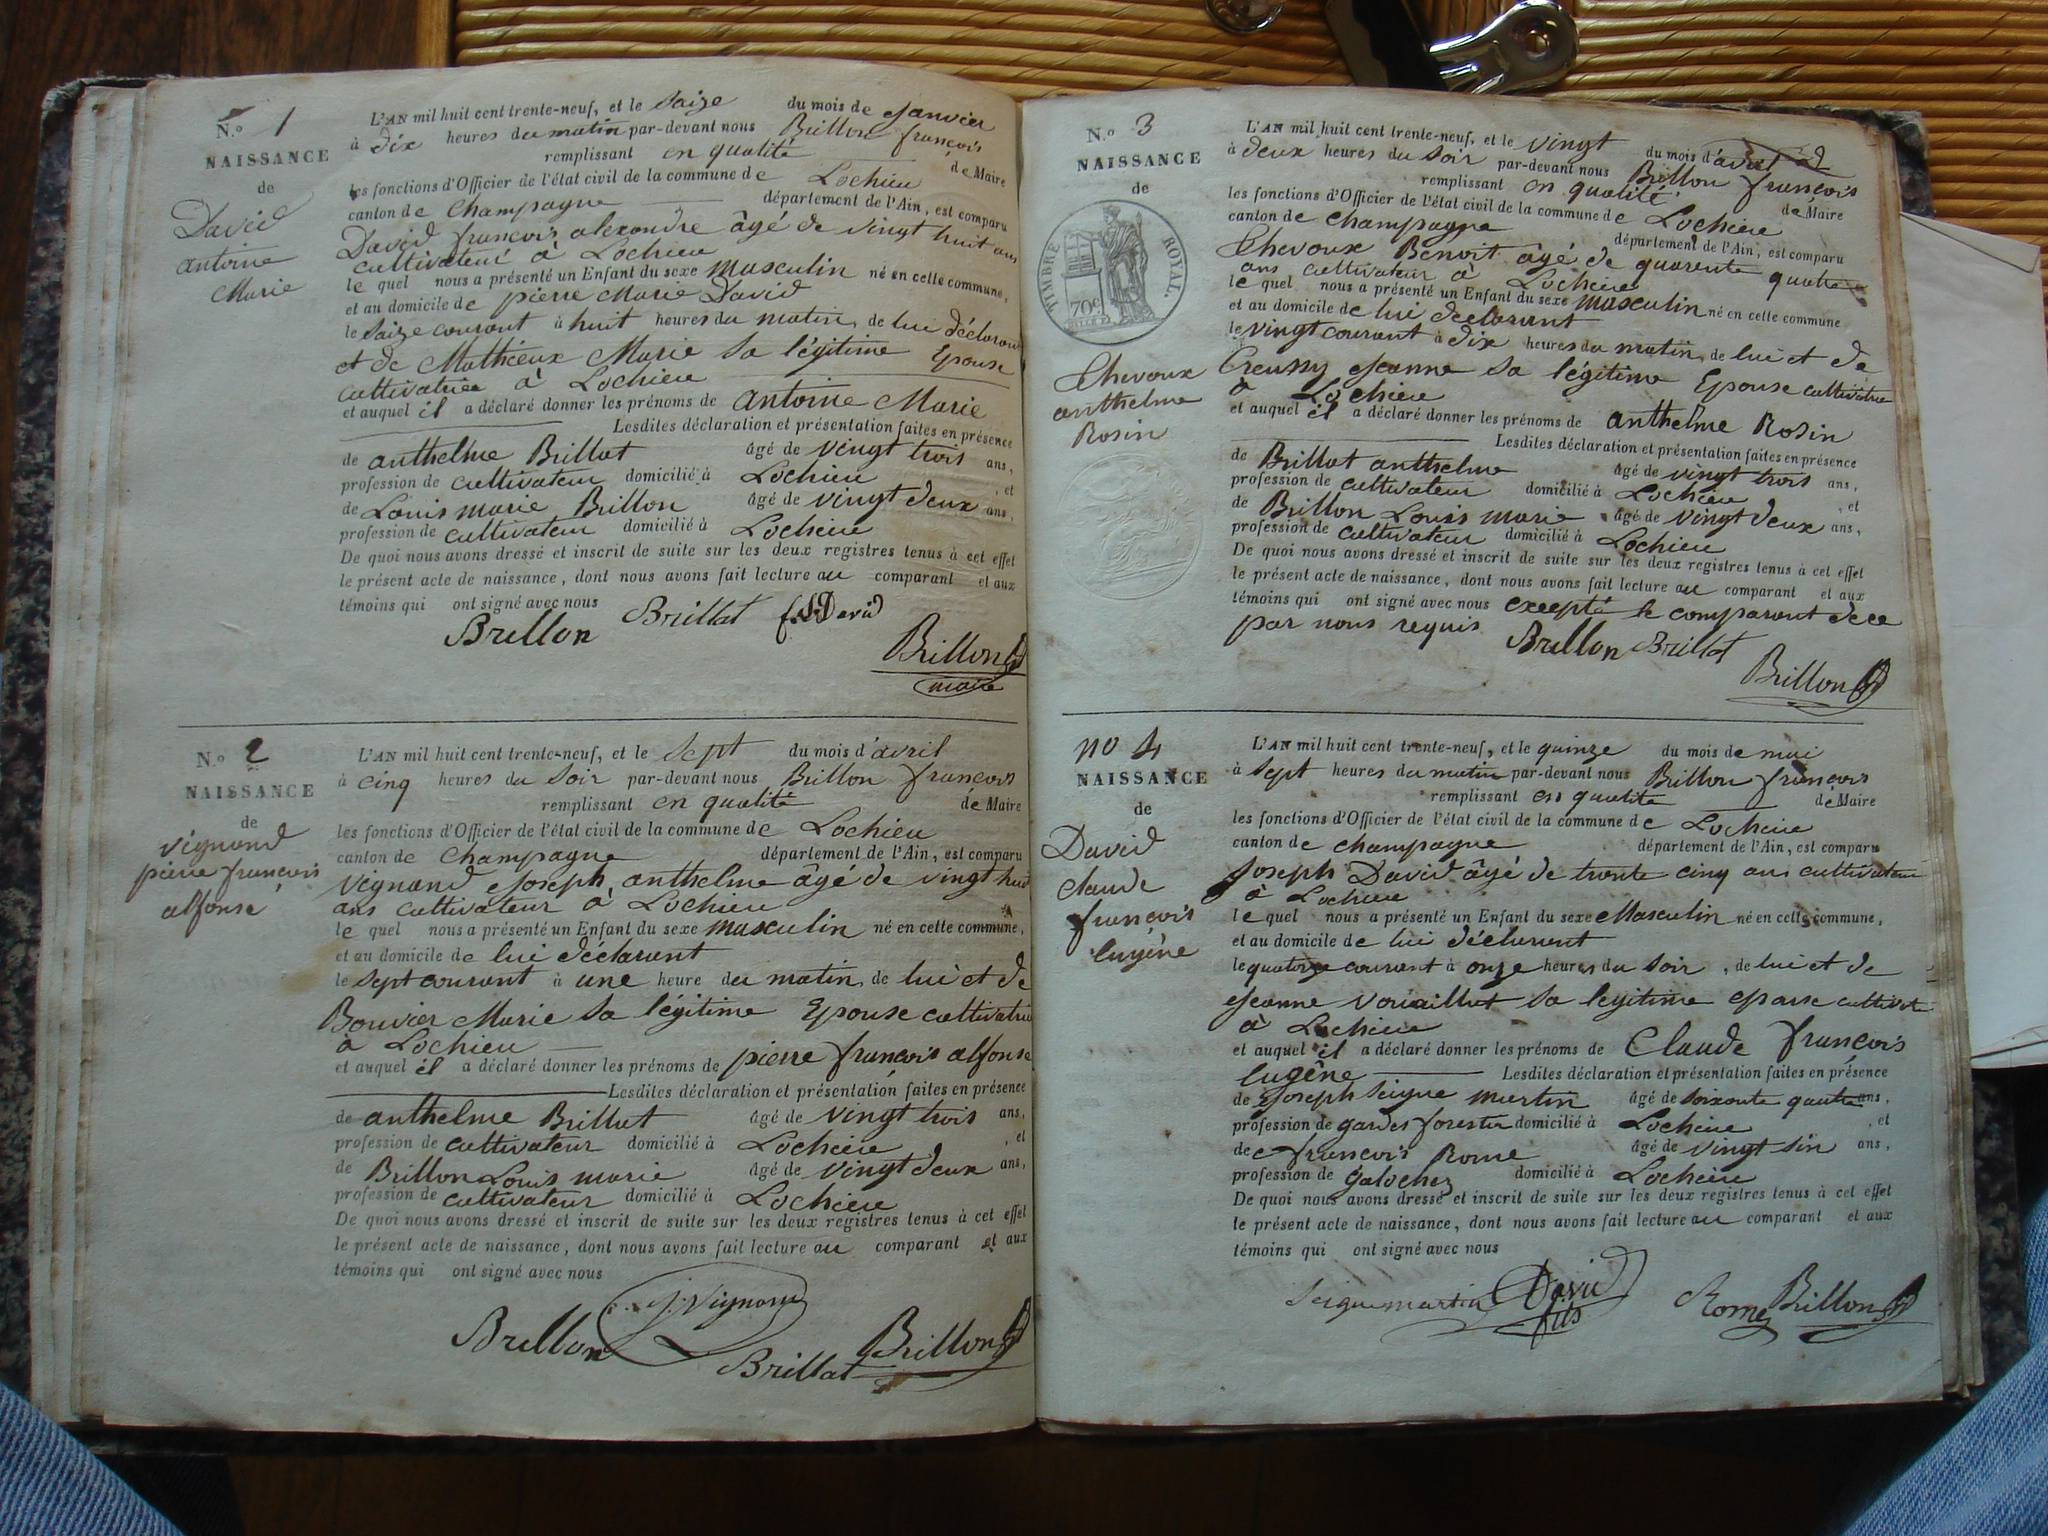 N.º 1
NAISSANCE
de
David
antoine
Marie
L'AN mil huit cent trente-neuf, et le Saize du mois de Janvier
à dix heures du matin par-devant nous Brillon françois
remplissant en qualité de Maire
les fonctions d'Officier de l'état civil de la commune de Lochieu
canton de Champagne département de l'Ain, est comparu
David françois alexandre âgé de vingt huit ans
cultivateur à Lochieu
le quel nous a présenté un Enfant du sexe masculin né en cette commune,
et au domicile de pierre Marie David
le Saize courant à huit heures du matin, de lui déclarant
et de Mathieux Marie sa légitime Epouse
cultivatrice à Lochieu
et auquel il a déclaré donner les prénoms de antoine Marie
Lesdites déclaration et présentation faites en présence
de anthelme Brillat âgé de vingt trois ans,
profession de cultivateur domicilié à Lochieu, et
de Louis marie Brillon âgé de vingt deux ans,
profession de cultivateur domicilié à Lochieu
De quoi nous avons dressé et inscrit de suite sur les deux registres tenus à cet effet
le présent acte de naissance, dont nous avons fait lecture au comparant et aux
témoins qui ont signé avec nous
Brillon Brillat David
Brillon
maire
N.º 2
NAISSANCE
de
vignand
pierre françois
alfonse
L'AN mil huit cent trente-neuf, et le Sept du mois d'avril
à cinq heures du Soir par-devant nous Brillon françois
remplissant en qualité de Maire
les fonctions d'Officier de l'état civil de la commune de Lochieu
canton de Champagne département de l'Ain, est comparu
vignand Joseph anthelme âgé de vingt huit
ans cultivateur à Lochieu
le quel nous a présenté un Enfant du sexe masculin né en cette commune,
et au domicile de lui déclarant
le sept courant à une heure du matin, de lui et de
Bouvier Marie sa légitime Epouse cultivatrice
à Lochieu
et auquel il a déclaré donner les prénoms de pierre françois alfonse
Lesdites déclaration et présentation faites en présence
de anthelme Brillat âgé de vingt trois ans,
profession de cultivateur domicilié à Lochieu, et
de Brillon Louis marie âgé de vingt deux ans,
profession de cultivateur domicilié à Lochieu
De quoi nous avons dressé et inscrit de suite sur les deux registres tenus à cet effet
le présent acte de naissance, dont nous avons fait lecture au comparant et aux
témoins qui ont signé avec nous
J. Vignand
Brillon Brillat Brillon
N.º 3
NAISSANCE
de
TIMBRE ROYAL.
70c
Chevoux
anthelme
Rosin
L'AN mil huit cent trente-neuf, et le vingt du mois d'avril
à deux heures du soir par-devant nous Brillon françois
remplissant en qualité de Maire
les fonctions d'Officier de l'état civil de la commune de Lochieu
canton de champagne département de l'Ain, est comparu
Chevoux Benoit âgé de quarente quatre
ans cultivateur à Lochieu
le quel nous a présenté un Enfant du sexe masculin né en cette commune
et au domicile de lui déclarant
le vingt courant à dix heures du matin, de lui et de
Creussy Jeanne sa légitime Epouse cultivatrice
à Lochieu
et auquel il a déclaré donner les prénoms de anthelme Rosin
Lesdites déclaration et présentation faites en présence
de Brillat anthelme âgé de vingt trois ans,
profession de cultivateur domicilié à Lochieu, et
de Brillon Louis marie âgé de vingt deux ans,
profession de cultivateur domicilié à Lochieu
De quoi nous avons dressé et inscrit de suite sur les deux registres tenus à cet effet
le présent acte de naissance, dont nous avons fait lecture au comparant et aux
témoins qui ont signé avec nous excepté le comparant de ce
par nous requis
Brillon Brillat
Brillon
no 4
NAISSANCE
de
David
claude
françois
Eugène
L'AN mil huit cent trente-neuf, et le quinze du mois de mai
à sept heures du matin par-devant nous Brillon françois
remplissant en qualité de Maire
les fonctions d'Officier de l'état civil de la commune de Lochieu
canton de champagne département de l'Ain, est comparu
Joseph David âgé de trente cinq ans cultivateur
à Lochieu
le quel nous a présenté un Enfant du sexe Masculin né en cette commune,
et au domicile de lui déclarant
le quatorze courant à onze heures du soir, de lui et de
Jeanne vouaillat sa legitime eparse cultivat
à Lochieu
et auquel il a déclaré donner les prénoms de Claude françois
Eugène Lesdites déclaration et présentation faites en présence
de Joseph Seigne martin âgé de soixante quatre ans,
profession de gardes forestier domicilié à Lochieu, et
de françois Rome âgé de vingt sin ans,
profession de galochez domicilié à Lochieu
De quoi nous avons dressé et inscrit de suite sur les deux registres tenus à cet effet
le présent acte de naissance, dont nous avons fait lecture au comparant et aux
témoins qui ont signé avec nous
Seigne martin David fils Rome Brillon